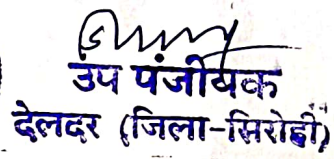 उप पंजीयक
देलदर (जिला-सिरोही)